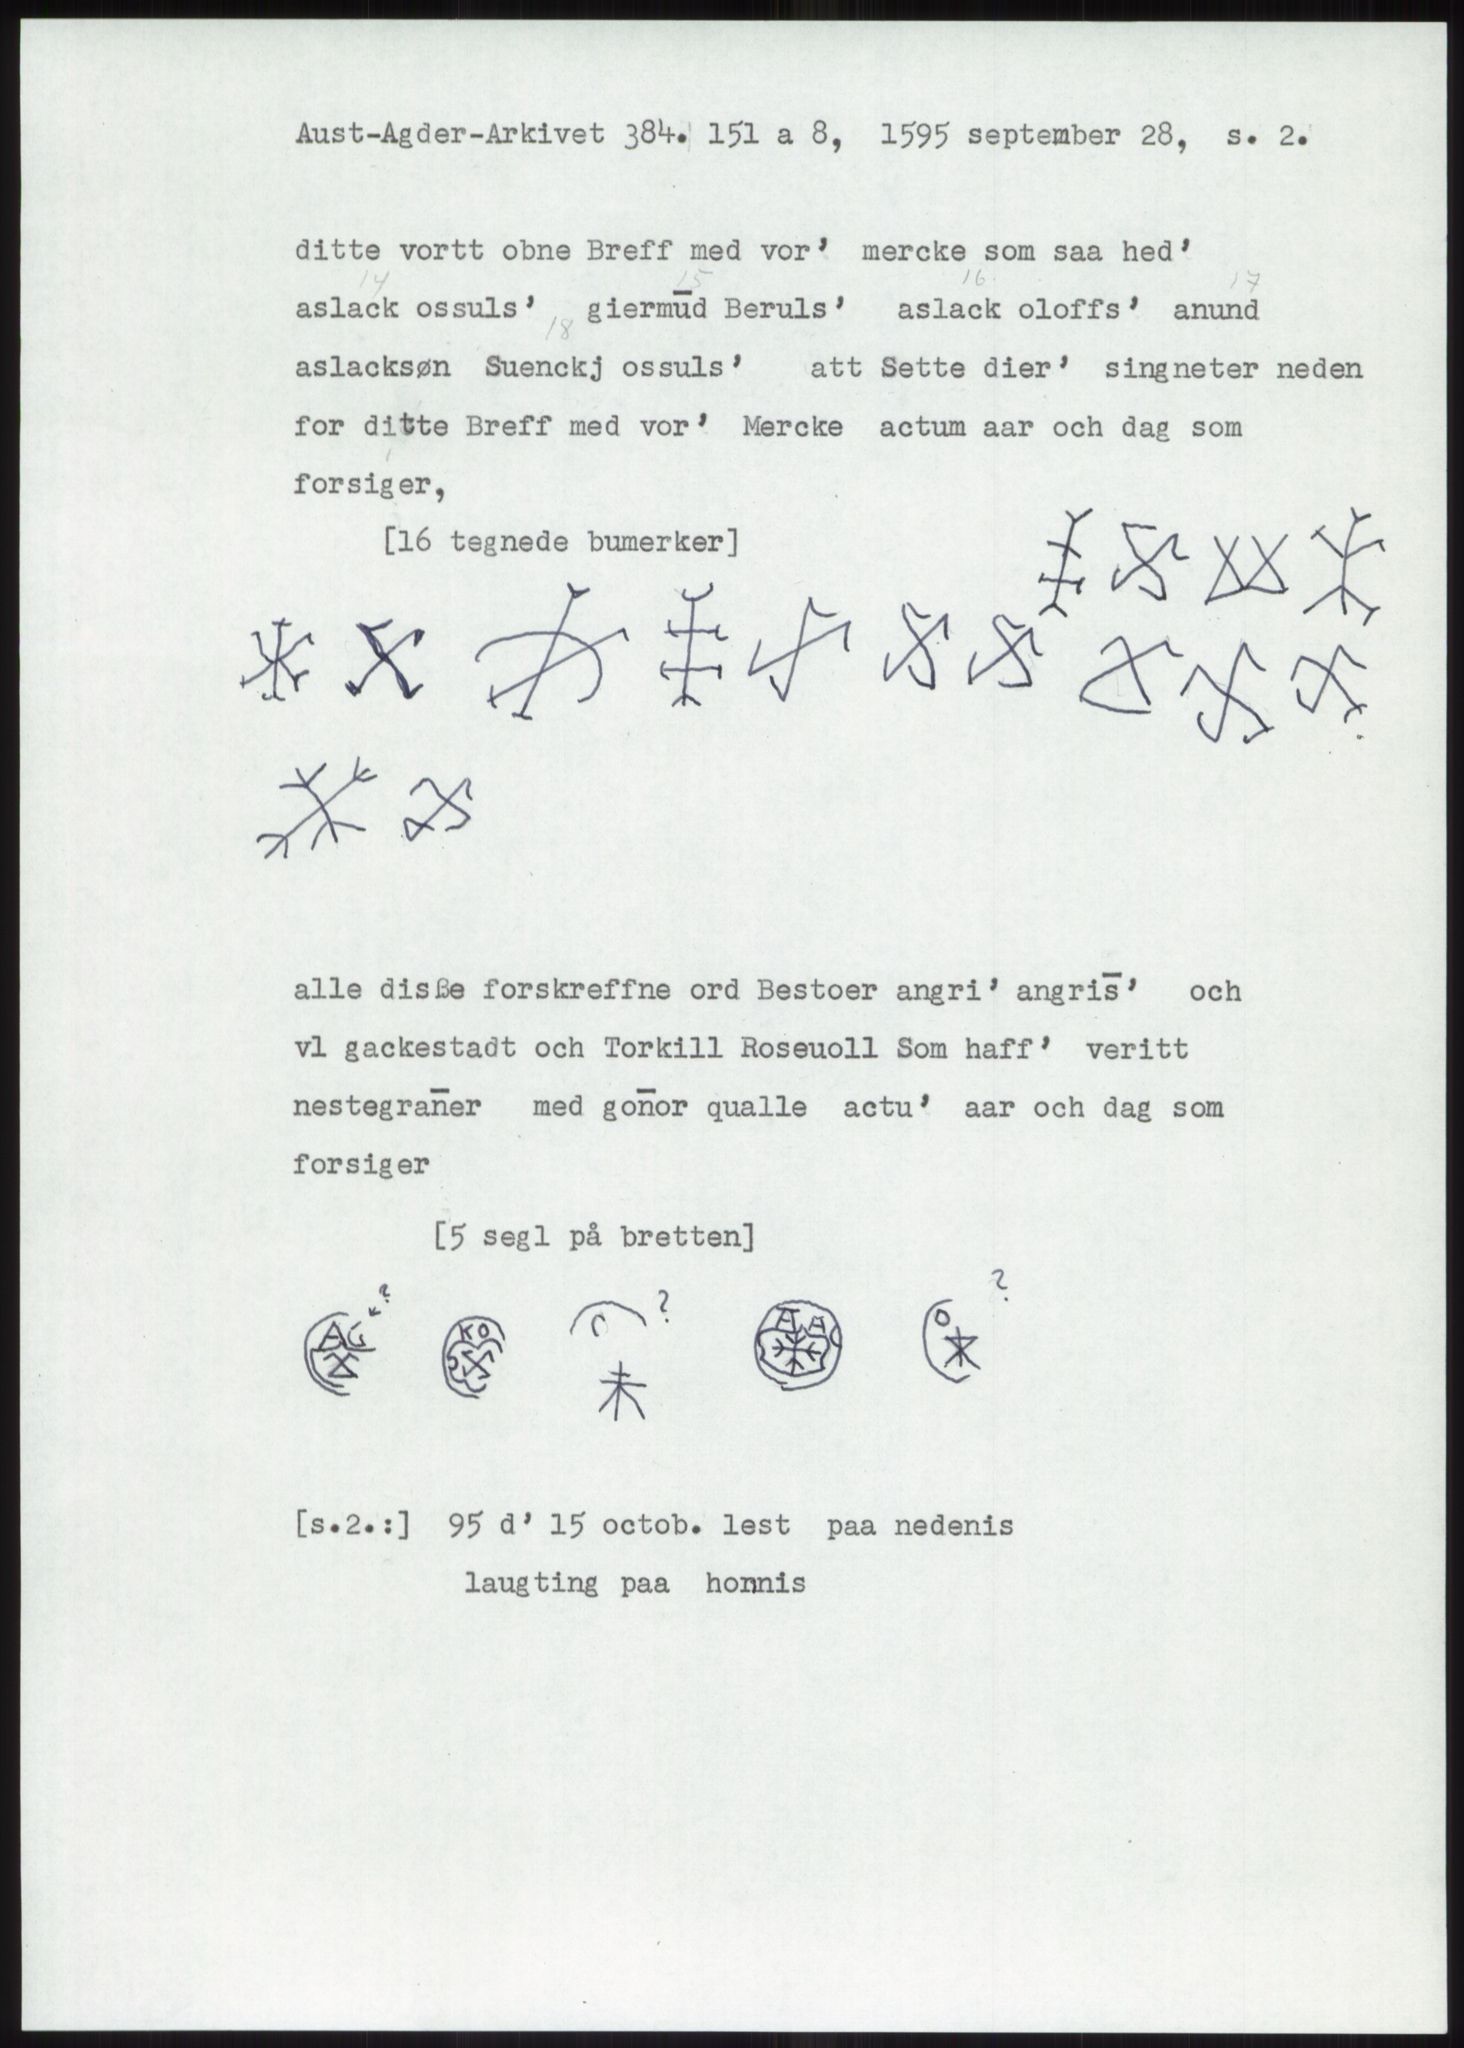 Aust-Agder-Arkivet 384. 151 a 8, 1595 september 28, s. 2.
ditte vortt obne Breff med vor' mercke som saa hed'
14 15 16 17
aslack ossuls' giermūd Beruls' aslack oloffs' anund
18
aslacksøn Suenckj ossuls' att Sette dier' singneter neden
for ditte Breff med vor' Mercke actum aar och dag som
forsiger,
[16 tegnede bumerker]
alle disße forskreffne ord Bestoer angri' angris̄' och
vl gackestadt och Torkill Roseuoll Som haff' veritt
nestegran̄er med gon̄or qualle actu' aar och dag som
forsiger
[5 segl på bretten]
? ? ?
AG KO O AA O
[s.2.:] 95 d' 15 octob. lest paa nedenis
laugting paa honnis